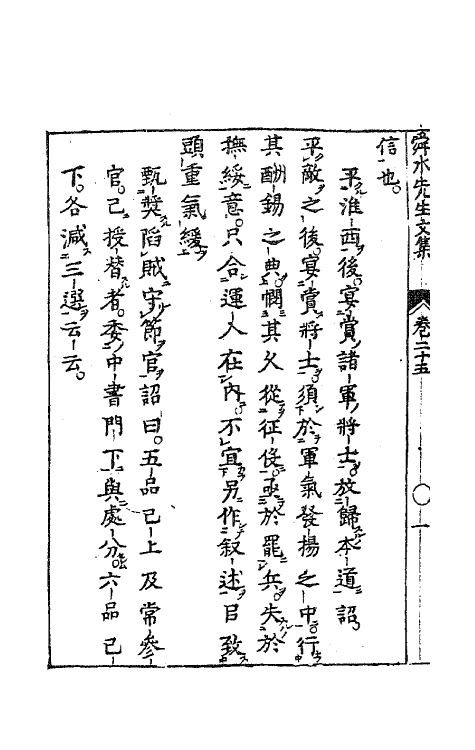 舜水先生文集 卷二十五 〇一
信也。
平淮西後。宴賞諸軍將士。放歸本道詔。
平敵之後。宴賞將士。須於軍氣發揚之中。行
其酬錫之典。憫其久從征伐。亟於罷兵。失於
撫綏意。只合運入在內。不宜另作叙述。目致
頭重氣緩
甄獎陷賊守節官詔曰。五品已上及常參
官。已授替者。委中書門下與處分。六品已
下。各減三選云云。